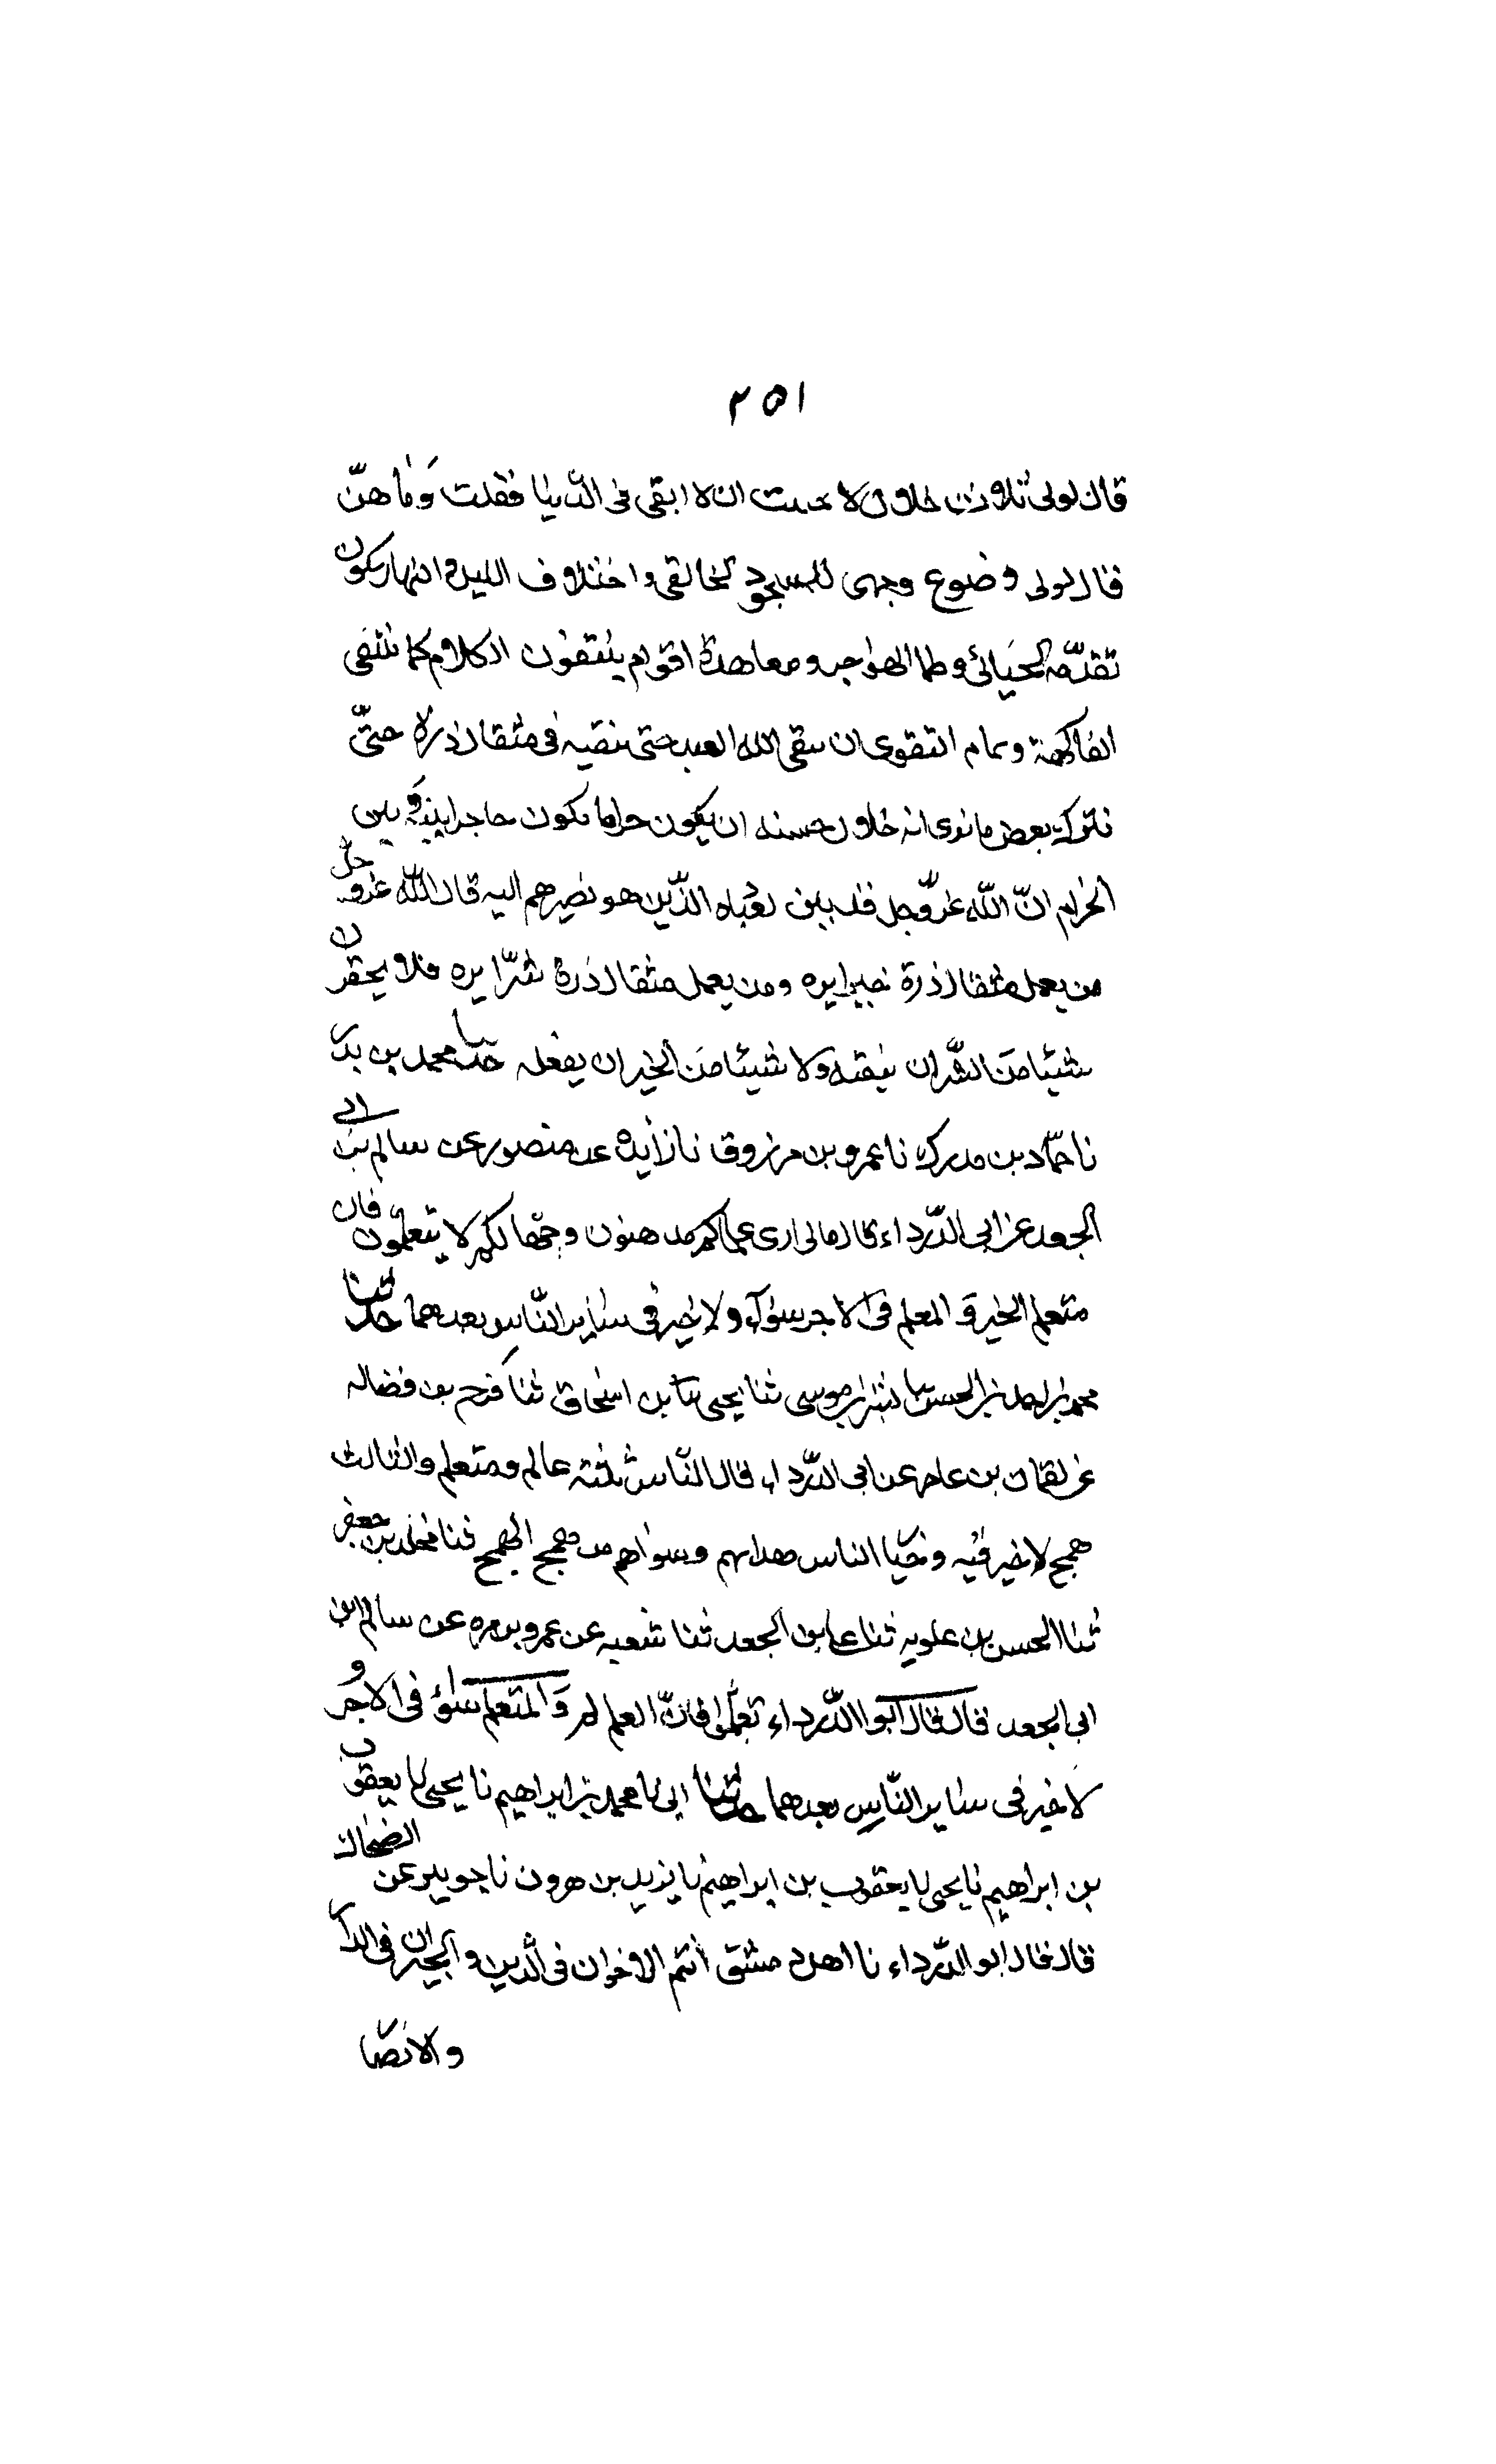 ٢٥١
قال لولى ثلاث خلال لا حببت ان لا ابقى فى الدنيا فقلت وما هنّ
فقال لولى وضوع وجهى للسجود لخالقى واختلاف الليل والنهار يكون
تقدّمة لحياتى وظما الهواجر ومعاهدة اقوام ينتقون الكلام كما تنتقى
الفاكهة وتمام التقوى ان يتقى الله العبد حتى يتقيه فى مثقال ذرة حتّى
يترك بعض ما يرى انه حلال خشية ان يكون حراما يكون حاجرا بينه وبين
الحرام انّ الله عزّ وجل قد بين لعباده الذّين هو نصيرهم اليه قال الله عز وجل
من يعمل مثقال ذرة خيرا يره ومن يعمل مثقال ذرة شرّا يره فلا يحقرن
شيئا من الشّر ان يتقيه ولا شيئا من الخير ان يفعله حدثنا محمد بن بدر
نا حمّاد بن مدرك نا عمرو بن مرزوق نا زائده عن منصور عن سالم بن ابى
الجعد عن ابى الدّرداء قال مالى ارى علماكم يذهبون وجهّالكم لا يتعلّمون فان
متعلم الخير و المعلم فى الاجر سواء ولا خير فى سائر النّاس بعدهما حدثنا
محمد بن احمد بن الحسن ثنا بشر بن موسى ثنا يحيى بن اسحاق ثنا فرج بن فضاله
عن لقمان بن عامر عن ابى الدّرداء قال النّاس ثلثة عالم ومتعلم والثالث
همج لا خير فيه الناس وسواهم همج الهمج ثنا مخلد بن جعفر
ثنا الحسن بن علويه ثنا على بن الجعد ثنا شعبه عن عمرو بن مره عن سالم ابن
ابى الجعد قال قال ابو الدّرداء تعلّموا فانّ العلم والمتعلم سواء فى الاجر و
لا خير فى سائر النّاس بعدهما حدثنا ابى نا محمد بن ابراهيم نا يحيى نا يعقوب
بن ابراهيم نا يحيى نا يعقوب بن ابراهيم نا يزيد بن هرون نا جويبر عن الضحاك
قال قال ابو الدّرداء نا اهل دمشق انتم الاخوان فى الدّين والجيران فى الدار
والانصا